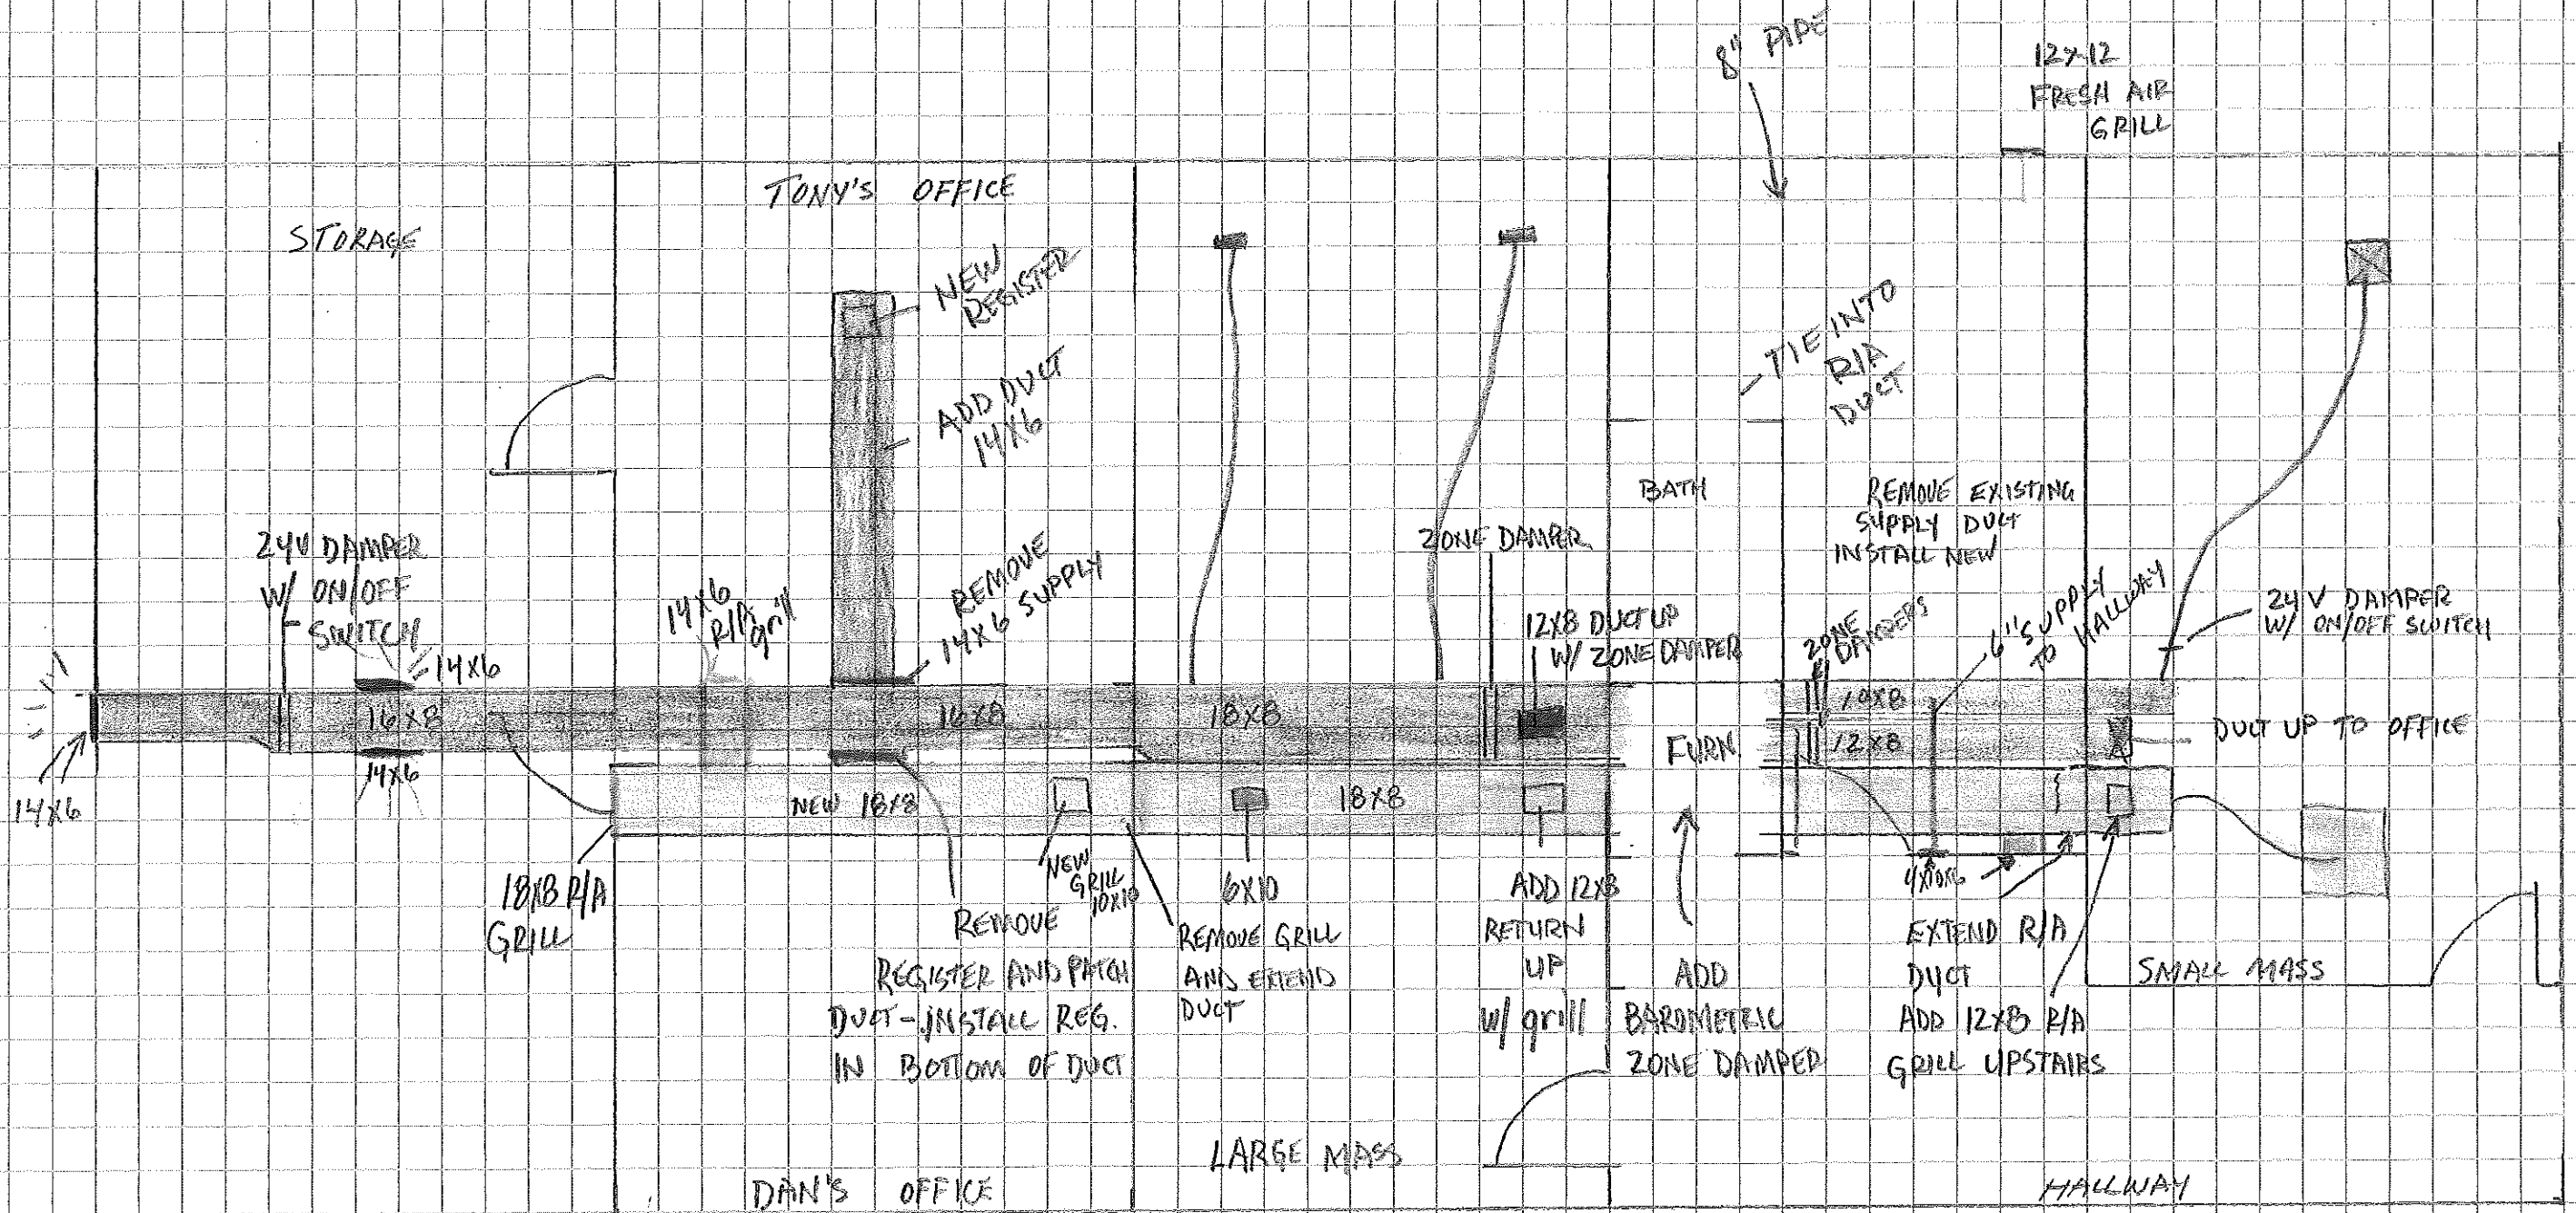 8" PIPE
12x12
FRESH AIR
GRILL
TONY'S OFFICE
STORAGE
NEW
REGISTER
ADD DUCT
14X6
TIE INTO
R/A
DUCT
BATH
REMOVE EXISTING
SUPPLY DUCT
INSTALL NEW
24V DAMPER
W/ ON/OFF
SWITCH
14X6
14X6
R/A
grill
REMOVE
14X6 SUPPLY
ZONE DAMPER
12X8 DUCT UP
W/ ZONE DAMPER
ZONE
DAMPERS
6" SUPPLY
TO HALLWAY
24 V DAMPER
W/ ON/OFF SWITCH
16X8
16X8
18X8
10X8
12X8
FURN.
DUCT UP TO OFFICE
14X6
14X6
NEW 18X8
18X8
18X8 R/A
GRILL
NEW
GRILL
10X10
6X10
ADD 12X8
RETURN
UP
w/ grill
REMOVE
REGISTER AND PATCH
DUCT - INSTALL REG.
IN BOTTOM OF DUCT
REMOVE GRILL
AND EXTEND
DUCT
ADD
BAROMETRIC
ZONE DAMPER
EXTEND R/A
DUCT
ADD 12X8 R/A
GRILL UPSTAIRS
SMALL MASS
LARGE MASS
DAN'S OFFICE
HALLWAY